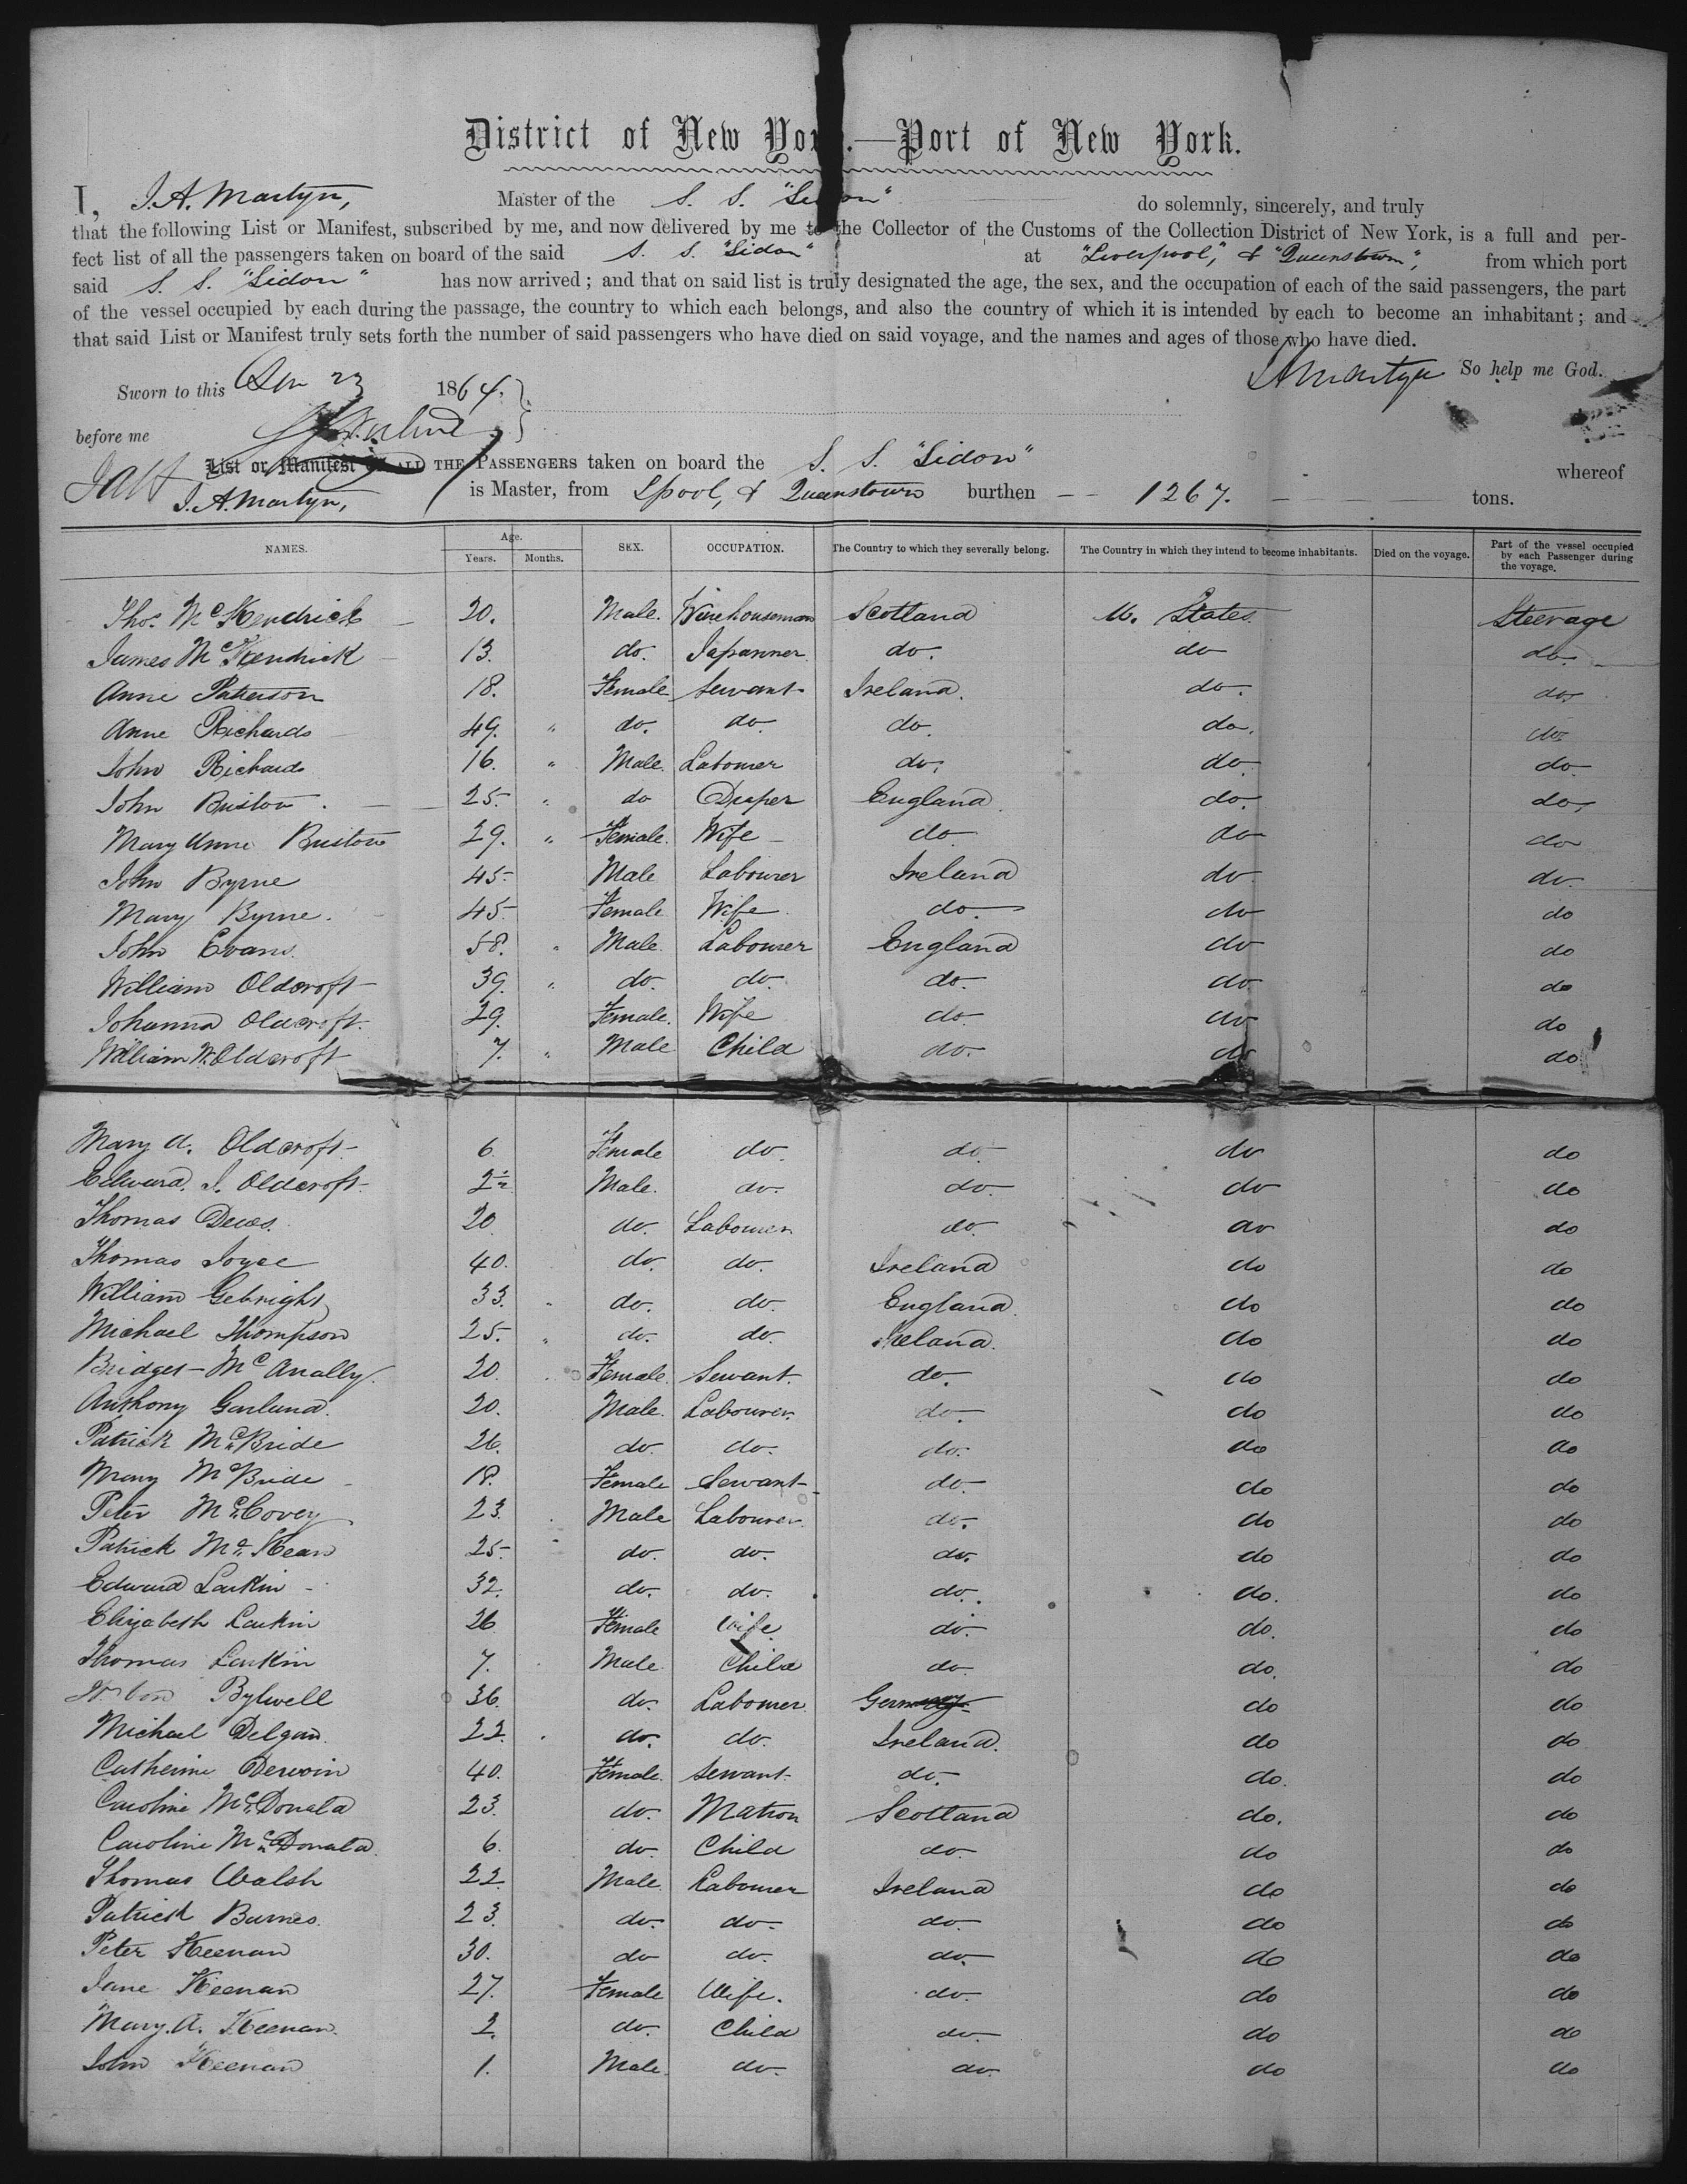 District of New Yor .—Port of New York.
I, J. A. Martyn, Master of the S. S. "Sidon" do solemnly, sincerely, and truly
that the following List or Manifest, subscribed by me, and now delivered by me to the Collector of the Customs of the Collection District of New York, is a full and per-
fect list of all the passengers taken on board of the said S. S. "Sidon" at "Liverpool," & "Queenstown", from which port
said S. S. "Sidon" has now arrived; and that on said list is truly designated the age, the sex, and the occupation of each of the said passengers, the part
of the vessel occupied by each during the passage, the country to which each belongs, and also the country of which it is intended by each to become an inhabitant; and
that said List or Manifest truly sets forth the number of said passengers who have died on said voyage, and the names and ages of those who have died.
JAMartyn So help me God.
Sworn to this 23 1864.
before me
List or Manifest OF ALL THE PASSENGERS taken on board the S. S. "Sidon" whereof
J. A. Martyn, is Master, from Lpool, & Queenstown burthen 1267. tons.
NAMES. Age. Years. Months. SEX. OCCUPATION. The Country to which they severally belong. The Country in which they intend to become inhabitants. Died on the voyage. Part of the vessel occupied by each Passenger during the voyage.
Thos. McKendrick 20. Male. Warehouseman Scotland U. States Steerage
James McKendrick 13. do. Japanner do. do do.
Anne Paterson 18. Female Servant Ireland. do. do.
Anne Richards 49. " do. do. do. do. do.
John Richards 16. " Male. Labourer do. do. do.
John Buston 25. " do Draper England. do. do.
Mary Anne Buston 29. " Female. Wife do do do
John Byrne 45. Male Labourer Ireland do do.
Mary Byrne. 45. Female Wife do. do do
John Evans. 58. " Male. Labourer England do do
William Oldcroft 39. " do. do. do. do. do
Johanna Oldcroft. 29. Female. Wife do. do do
William W. Oldcroft 7. " Male Child do. do do
Mary A. Oldcroft 6. Female do. do. do do
Edward. J. Oldcroft. 2 Male. do. do. do do
Thomas Dews. 20. do. Labourer do. do do
Thomas Joyce 40. do. do. Ireland do do
William Gebright 33. " do. do. England. do do
Michael Thompson 25. " do. do. Ireland. do do
Bridget McAnally. 20. Female. Servant. do. do do
Anthony Garland. 20. Male. Labourer. do. do do
Patrick McBride 26. do. do. do. do do
Mary McBride 18. Female Servant do. do do
Peter McCovey 23. Male Labourer. do. do do
Patrick McKean 25. do. do. do. do do
Edward Larkin 32. do. do. do. do. do
Elizabeth Larkin 26 Female Wife do. do. do
Thomas Larkin 7. Male Child do. do. do
Bylwell 36. do. Labourer. Germany do do
Michael Delgan. 22. do. do. Ireland. do do
Catherine Derwin 40. Female. Servant. do. do. do
Caroline McDonald 23. do. Matron Scotland do. do
Caroline McDonald. 6. do. Child do. do do
Thomas Walsh 22. Male Labourer Ireland do do
Patrick Barnes. 23. do. do. do. do do
Peter Keenan 30. do do. do. do do
Jane Keenan 27. Female Wife. do. do do
Mary. A. Keenan. 2. do. Child do. do do
John Keenan 1. Male. do. do. do do